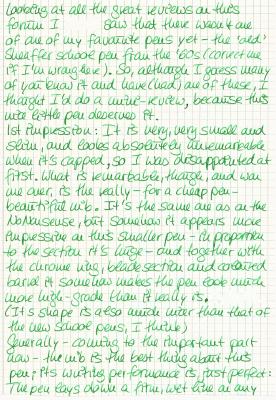 Looking at all the great reviews on this
forum I saw that there wasn't one
of one of my favourite pens yet - the 'old'
Sheaffer school pen from the '60s (correct me
if I'm wrong here). So, although I guess many
of you know it and have (had) one of these, I
thought I'd do a mini-review, because this
nice little pen deserves it.
1st Impression: It is very, very small and
slim, and looks absolutely unremarkable
when it's capped, so I was disappointed at
first. What is remarkable, though, and won
me over, is the really - for a cheap pen -
beautiful nib. It's the same one as on the
NoNonsense, but somehow it appears more
impressive on this smaller pen - in proportion
to the section it's huge - and together with
the chrome ring, black section and coloured
barrel it somehow makes the pen look much
more high-grade than it really is.
(Its shape is also much nicer than that of
the new school pens, I think)
Generally - coming to the important part
now - the nib is the best thing about this
pen; its writing performance is just perfect:
The pen lays down a firm, wet line on any